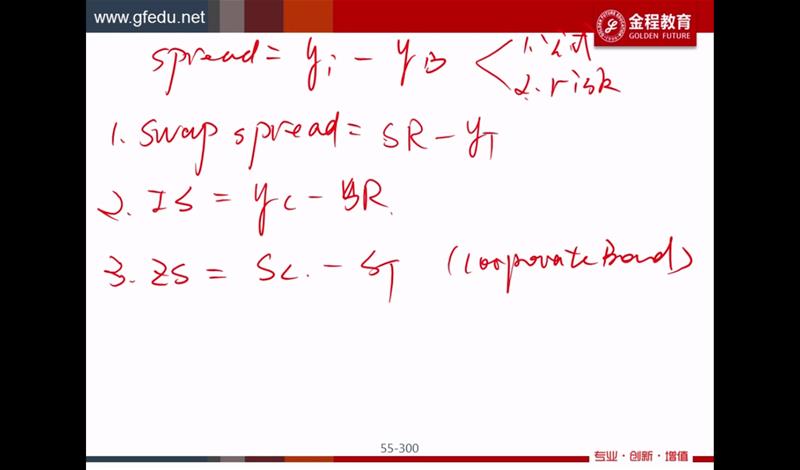 www.gfedu.net
金程教育
GOLDEN FUTURE
spread = yi - yB
1. 公式
2. risk
1. swap spread = SR - yT
2. IS = yc - SR.
3. ZS = Sc. - ST (Corporate Bond)
55-300
专业·创新·增值